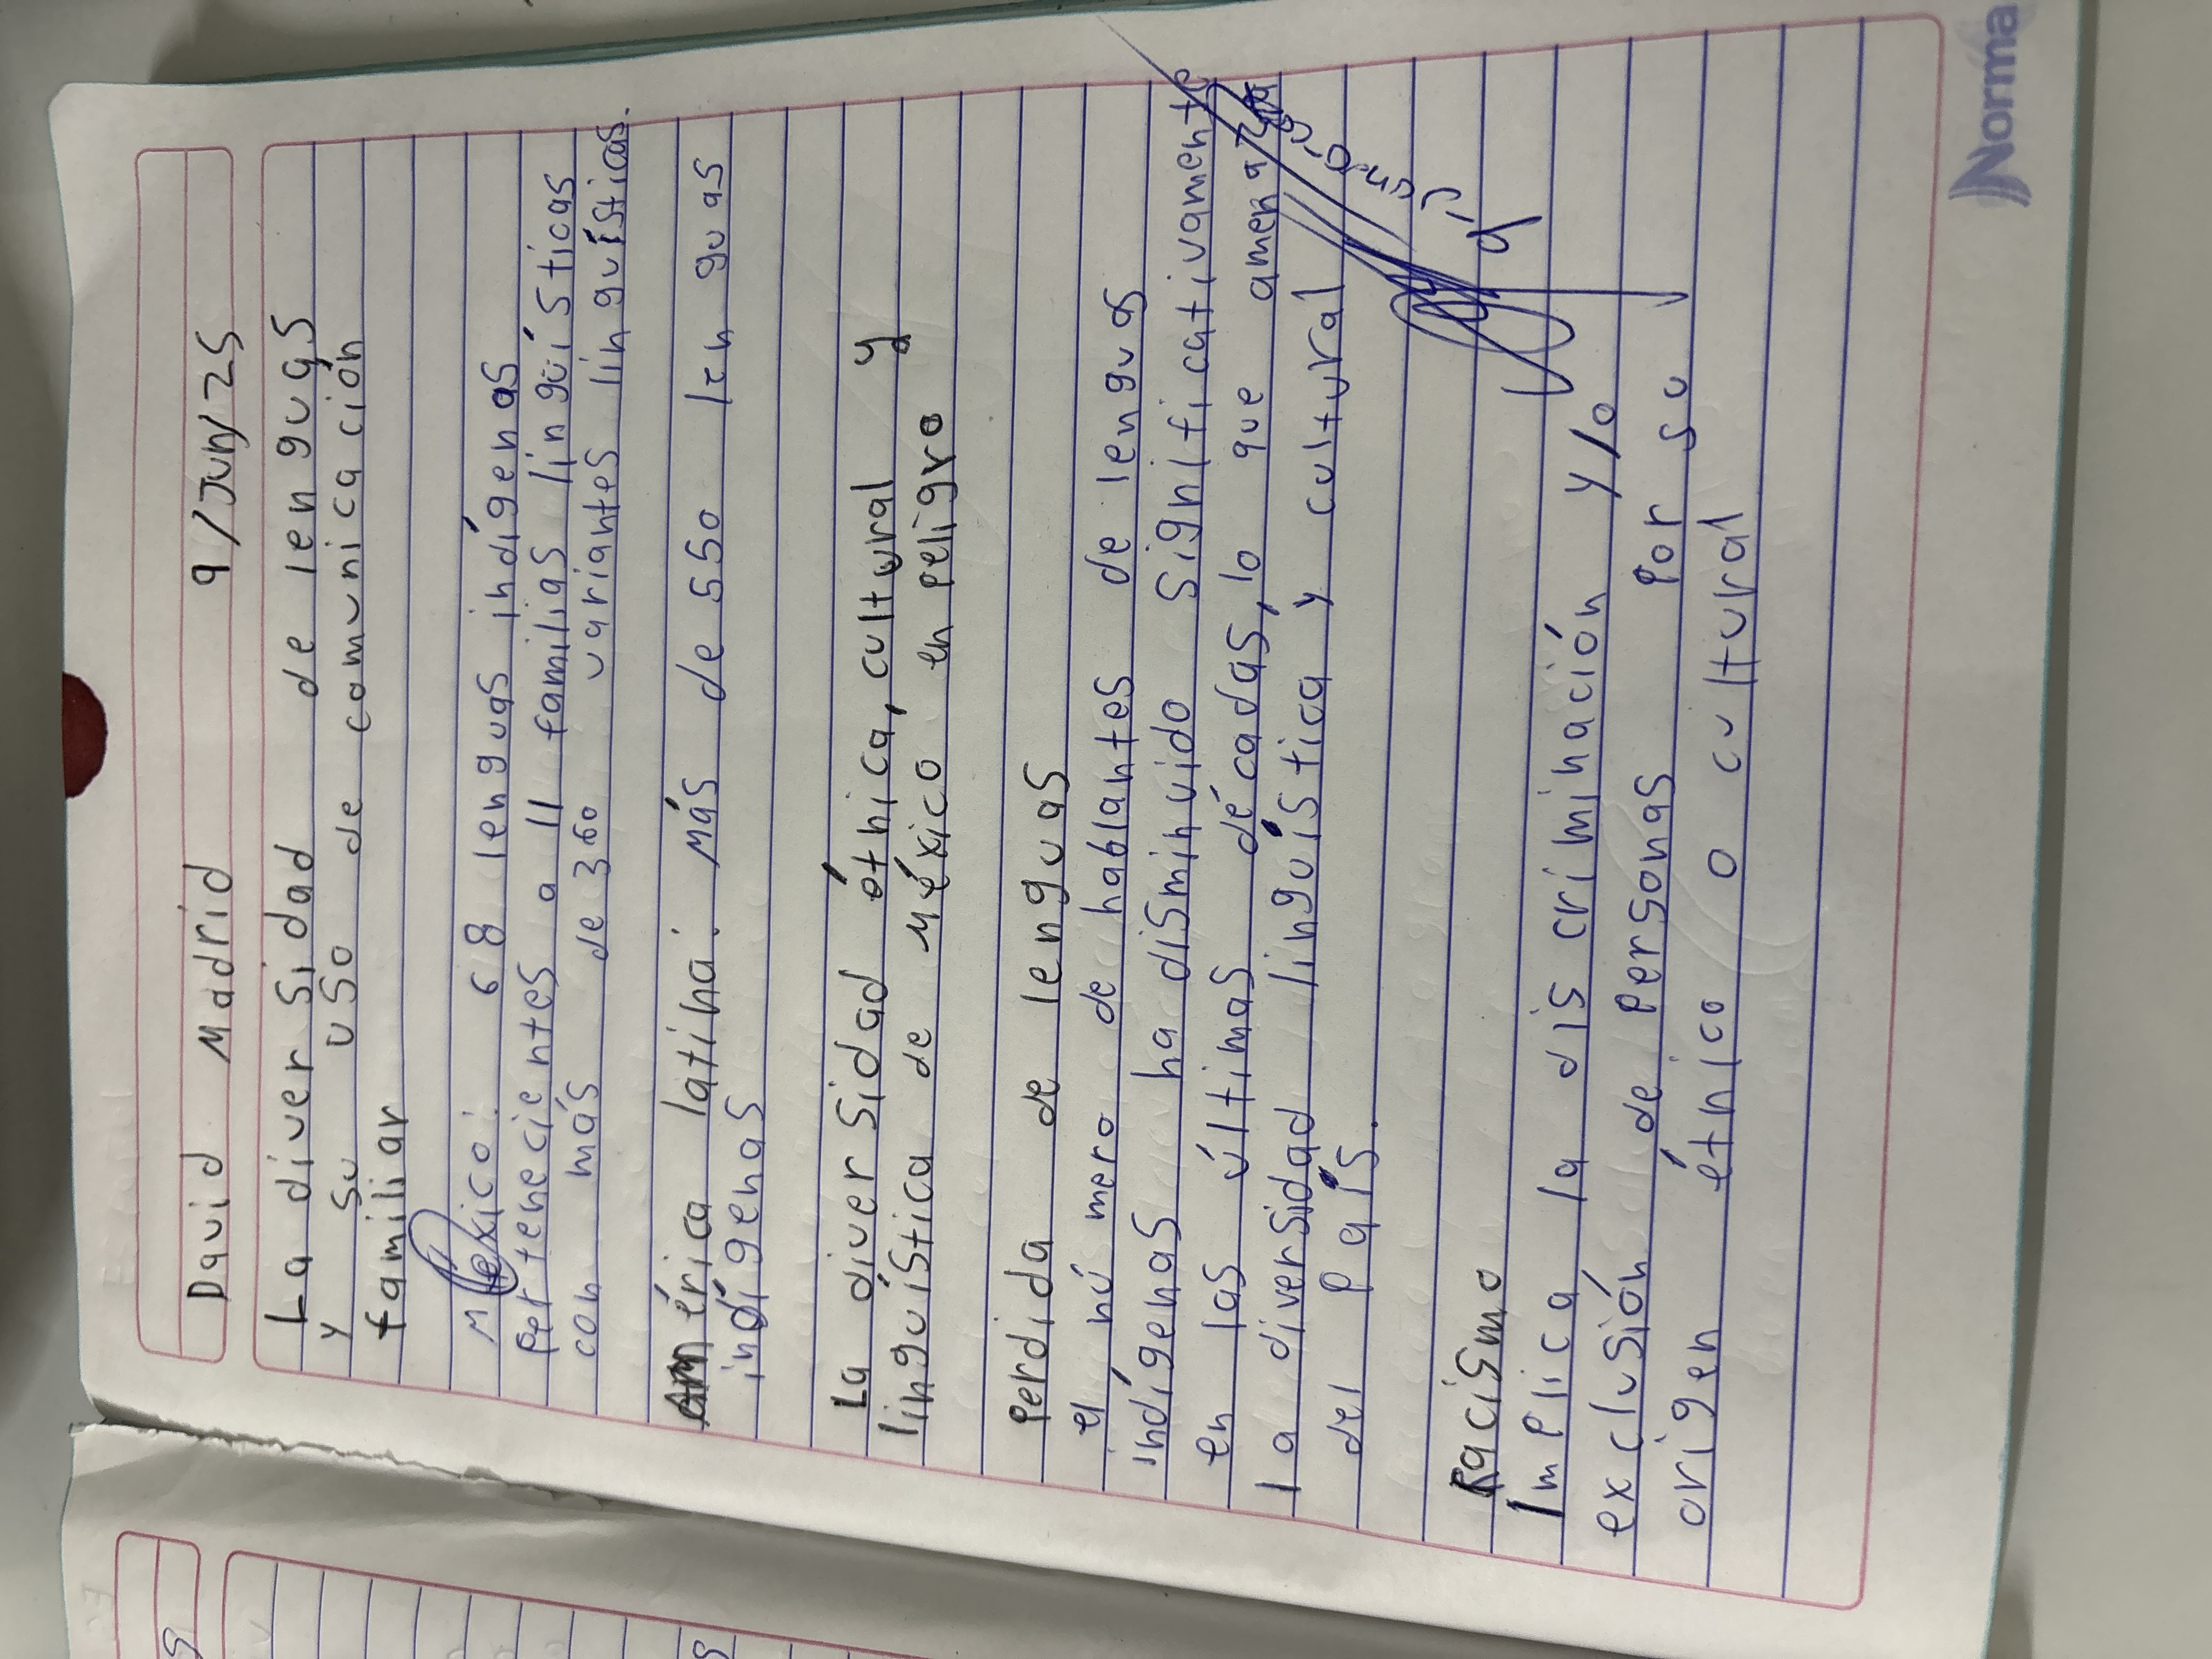 David Madrid 9/Jun/25
La diversidad de lenguas
y su uso de comunicación
familiar
México: 68 lenguas indígenas
pertenecientes a 11 familias lingüísticas
con más de 360 variantes linguísticas.
América latina: Más de 550 lenguas
indígenas
La diversidad étnica, cultural y
linguística de México en peligro
Perdida de lenguas
el número de hablantes de lenguas
indígenas ha disminuido significativamente
en las últimas décadas, lo que amenaza
la diversidad linguística y cultural
del país.
Racismo
Implica la discriminación y/o
exclusión de personas por su
origen étnico o cultural
Norma